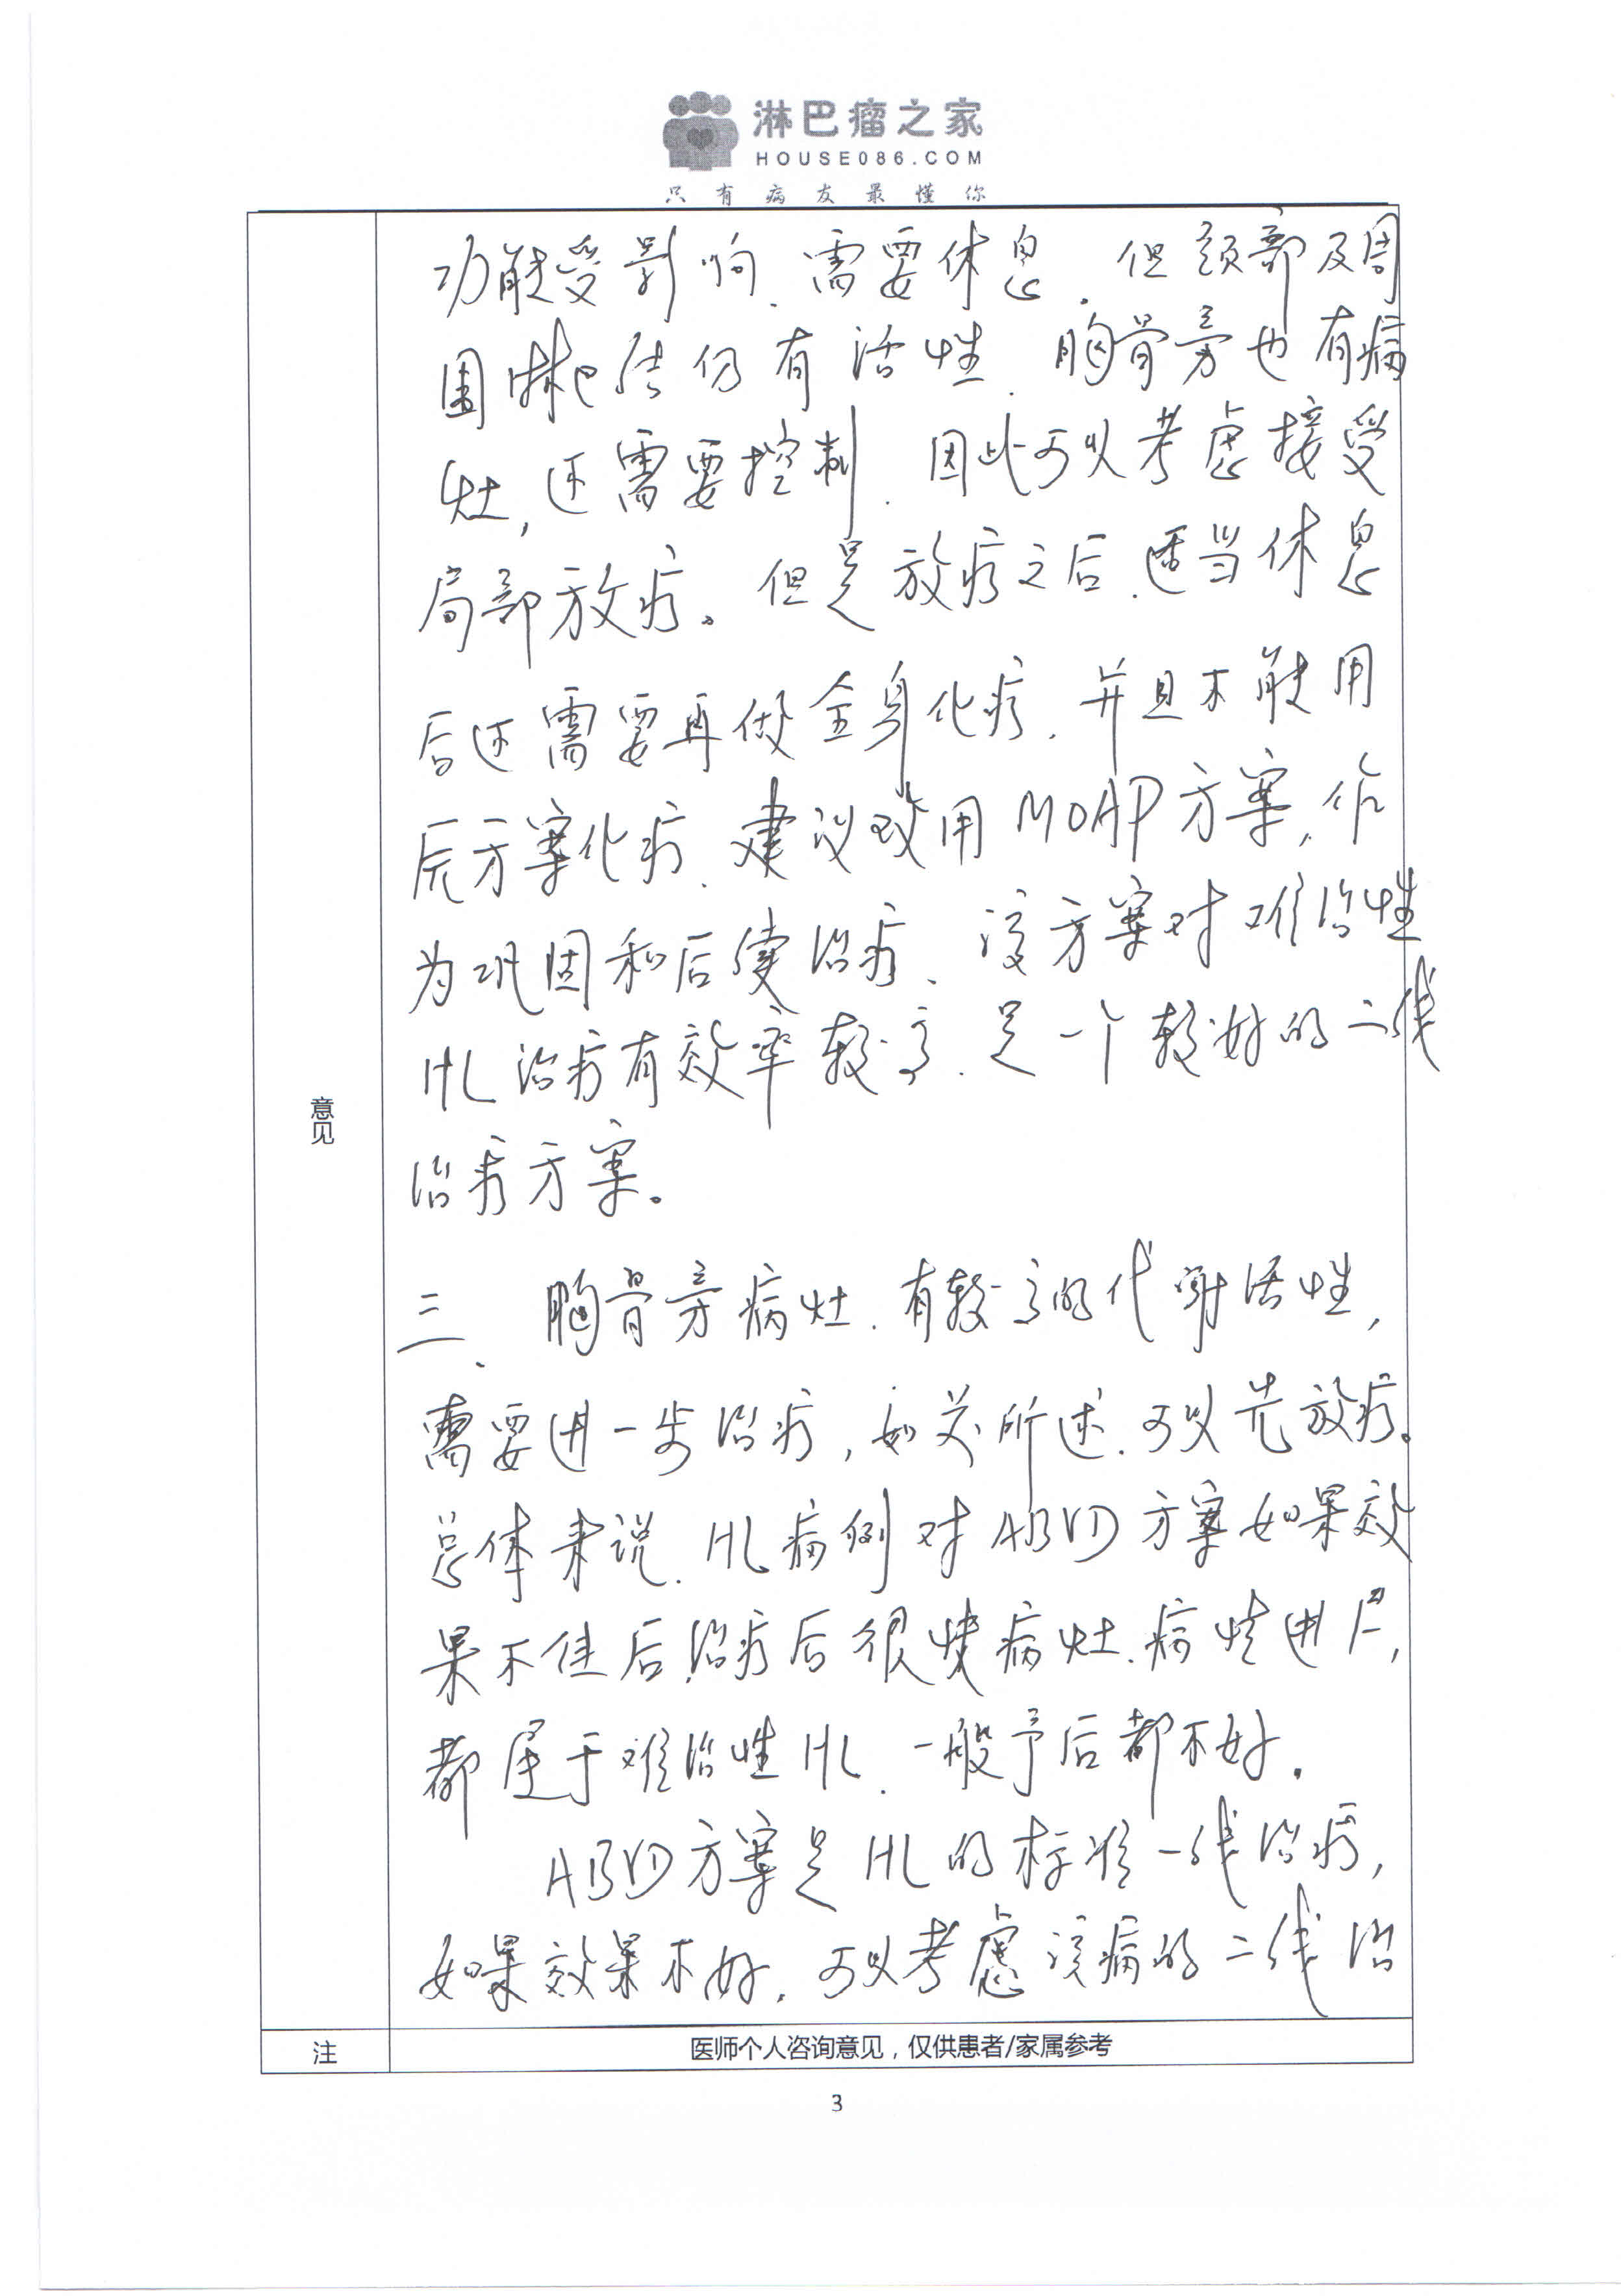 淋巴瘤之家
HOUSE086.COM
只有病友最懂你
功能受影响.需要休息.但颈部及周
围淋巴结仍有活性.胸骨旁也有病
灶,还需要控制.因此可以考虑接受
局部放疗。但是放疗之后.适当休息
后还需要再做全身化疗.并且不能用
原方案化疗.建议改用MOAP方案,作
为巩固和后续治疗.该方案对难治性
HL治疗有效率较高.是一个较好的二线
治疗方案。
三、胸骨旁病灶.有较高的代谢活性,
需要进一步治疗,如前所述.可以先放疗。
总体来说.HL病例对ABVD方案如果效
果不佳后,治疗后很快病灶.病情进展,
都属于难治性HL.一般予后都不好.
ABVD方案是HL的标准一线治疗,
如果效果不好.可以考虑该病的二线治
意见
注
医师个人咨询意见，仅供患者/家属参考
3